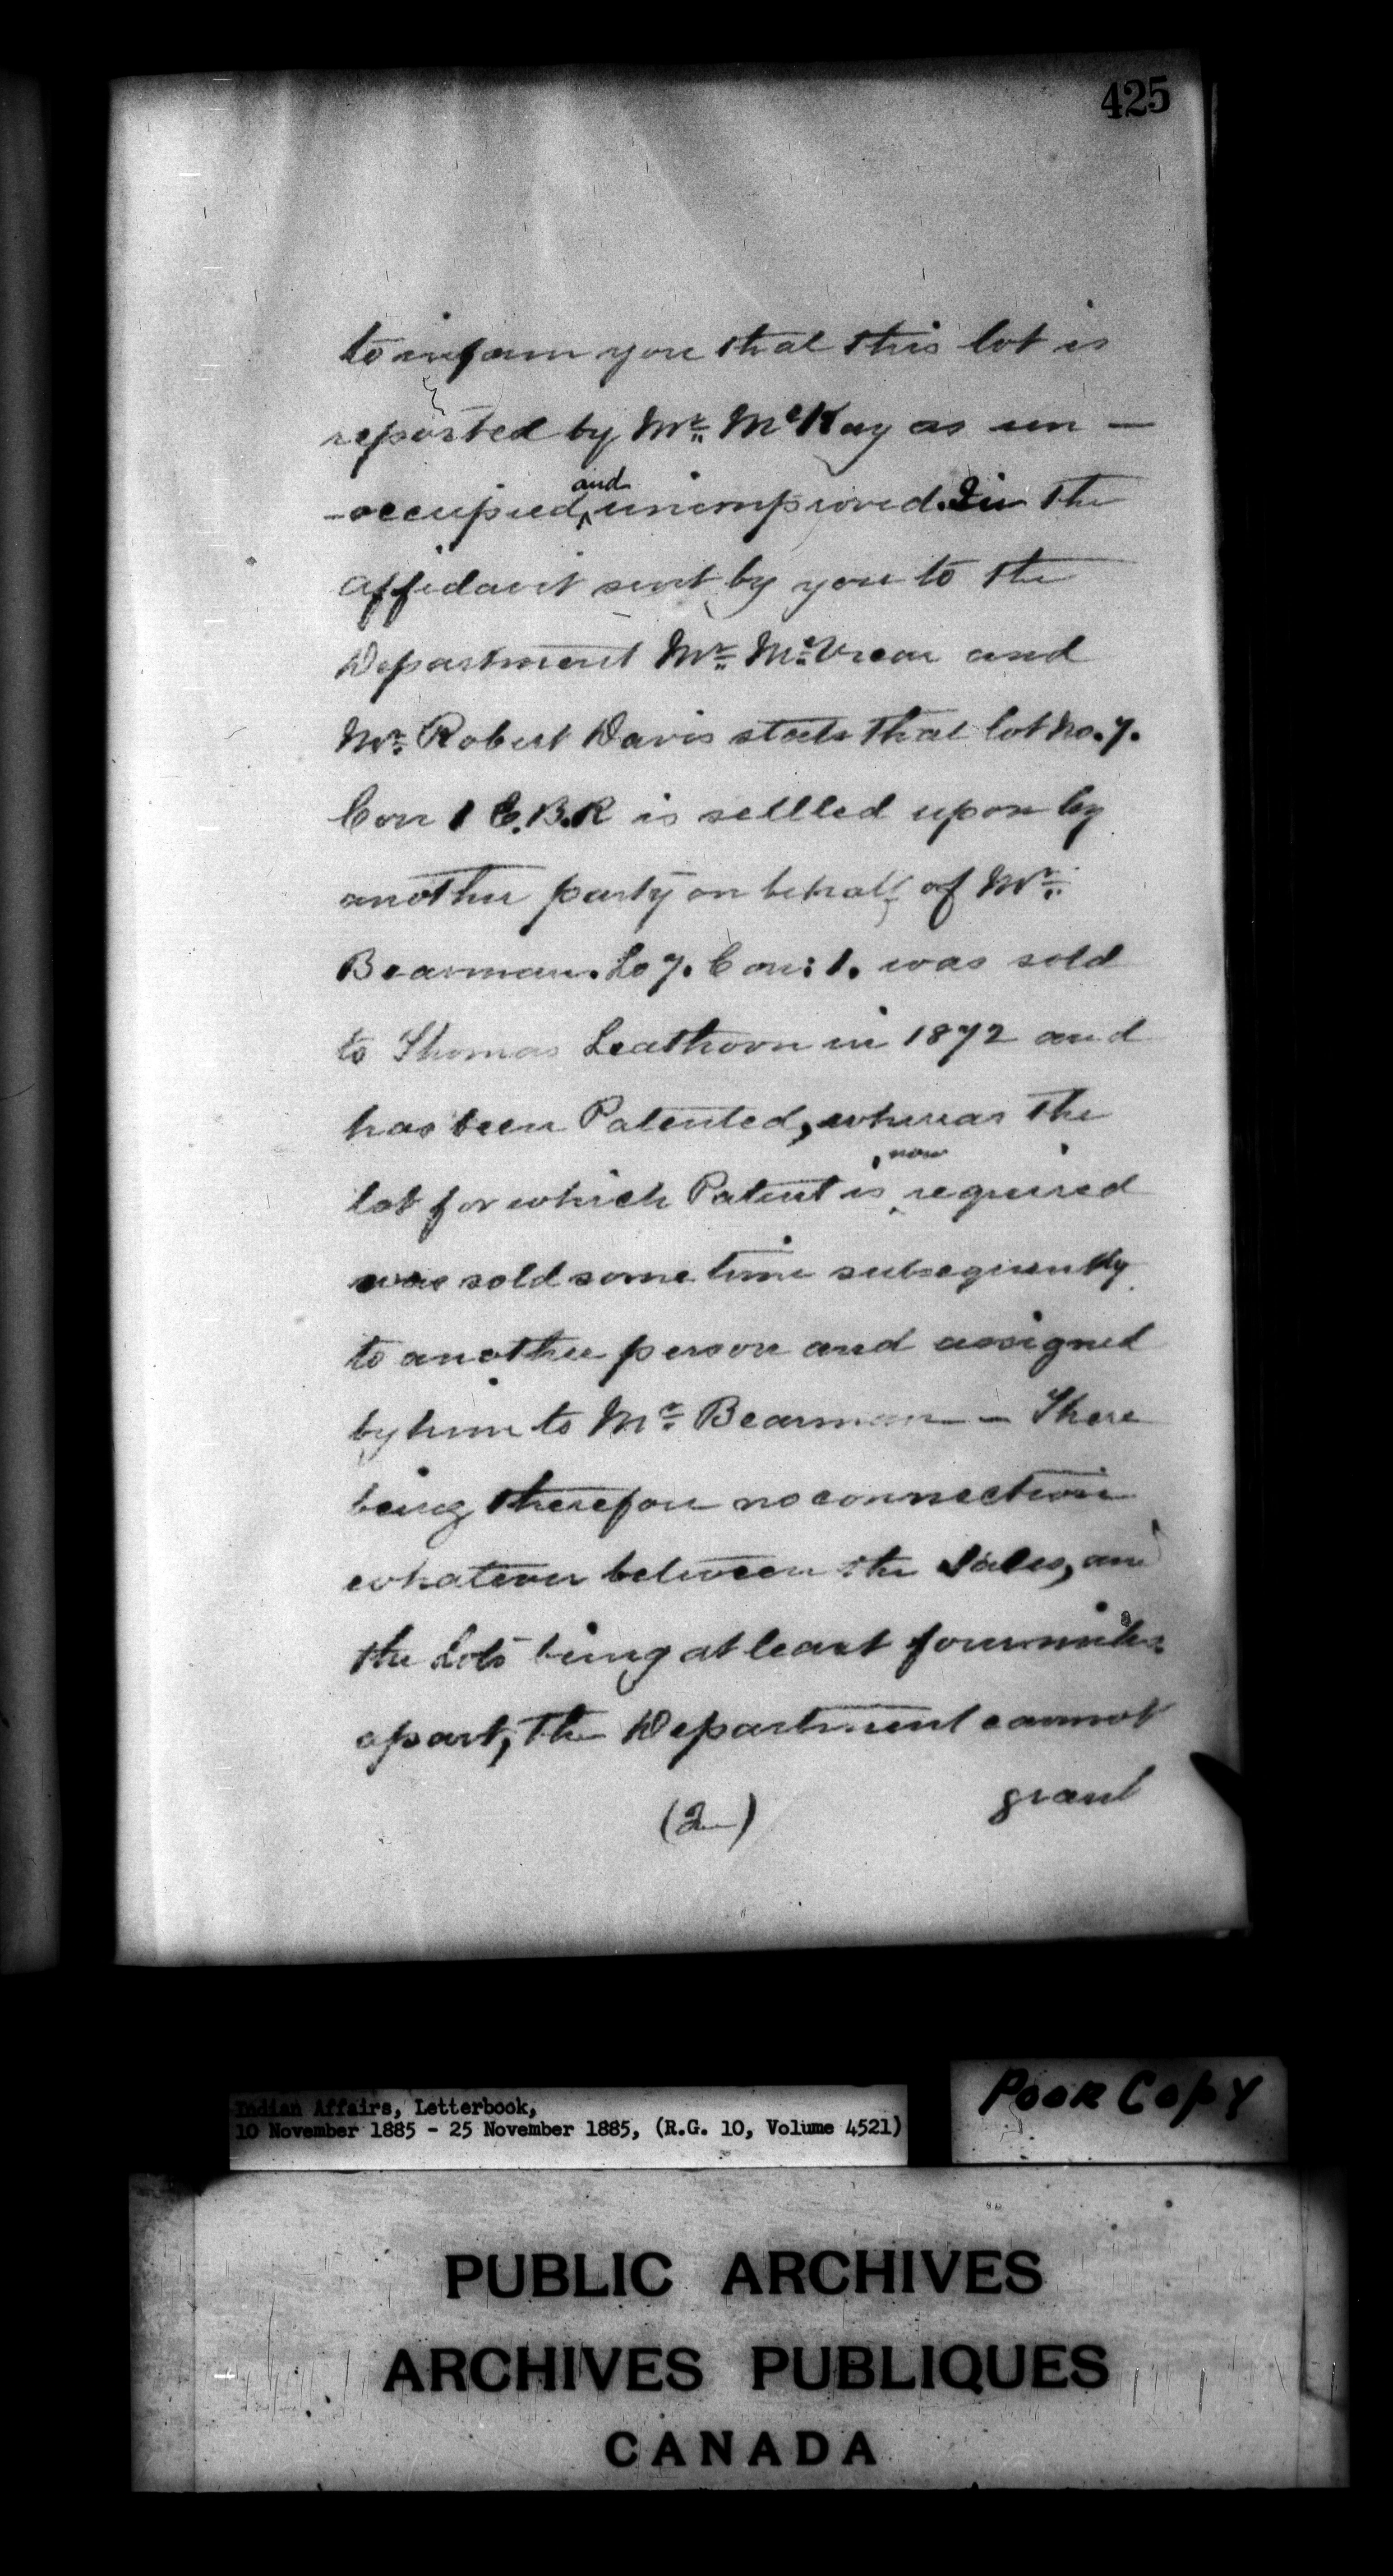 425
to inform you that this lot is
reported by Mr. McKay as un-
-occupied and unimproved. In the
affidavit sent by you to the
Department Mr. and
Mr. Robert Davis state that lot No. 7.
Con 1 E.B.R is settled upon by
another party on behalf of Mr.
Bearman. Lo 7. Con: 1. was sold
to Thomas Leathorn in 1872 and
has been Patented, whereas the
lot for which Patent is now required
was sold some time subsequently
to another person and assigned
by him to Mr. Bearman - There
being therefore no connection
whatever between the Sales, and
the Lots being at least four miles
apart, The Department cannot
(2)
grant
Indian Affairs, Letterbook,
10 November 1885 - 25 November 1885, (R.G. 10, Volume 4521)
POOR COPY
PUBLIC ARCHIVES
ARCHIVES PUBLIQUES
CANADA